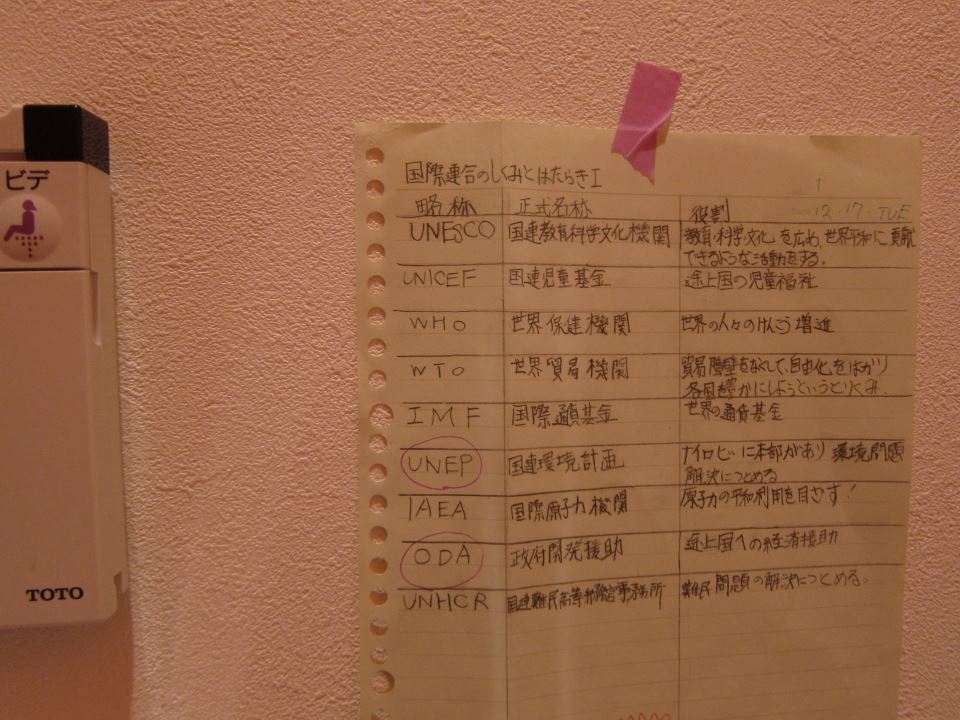 ビデ
TOTO
国際連合のしくみとはたらきI
1
12.17. TUE
略称 正式名称 役割
UNESCO 国連教育科学文化機関 教育・科学文化を広め、世界平和に貢献
できるような活動をする。
UNICEF 国連児童基金 途上国の児童福祉
WHO 世界保健機関 世界の人々のけんこう増進
WTO 世界貿易機関 貿易障壁をなくして、自由化をはかり
各国を豊かにしようというとりくみ。
IMF 国際通貨基金 世界の通貨基金
UNEP 国連環境計画 ナイロビに本部があり環境問題
解決につとめる
IAEA 国際原子力機関 原子力の平和利用を目ざす!
ODA 政府開発援助 途上国への経済援助
UNHCR 国連難民高等弁務官事務所 難民問題の解決につとめる。